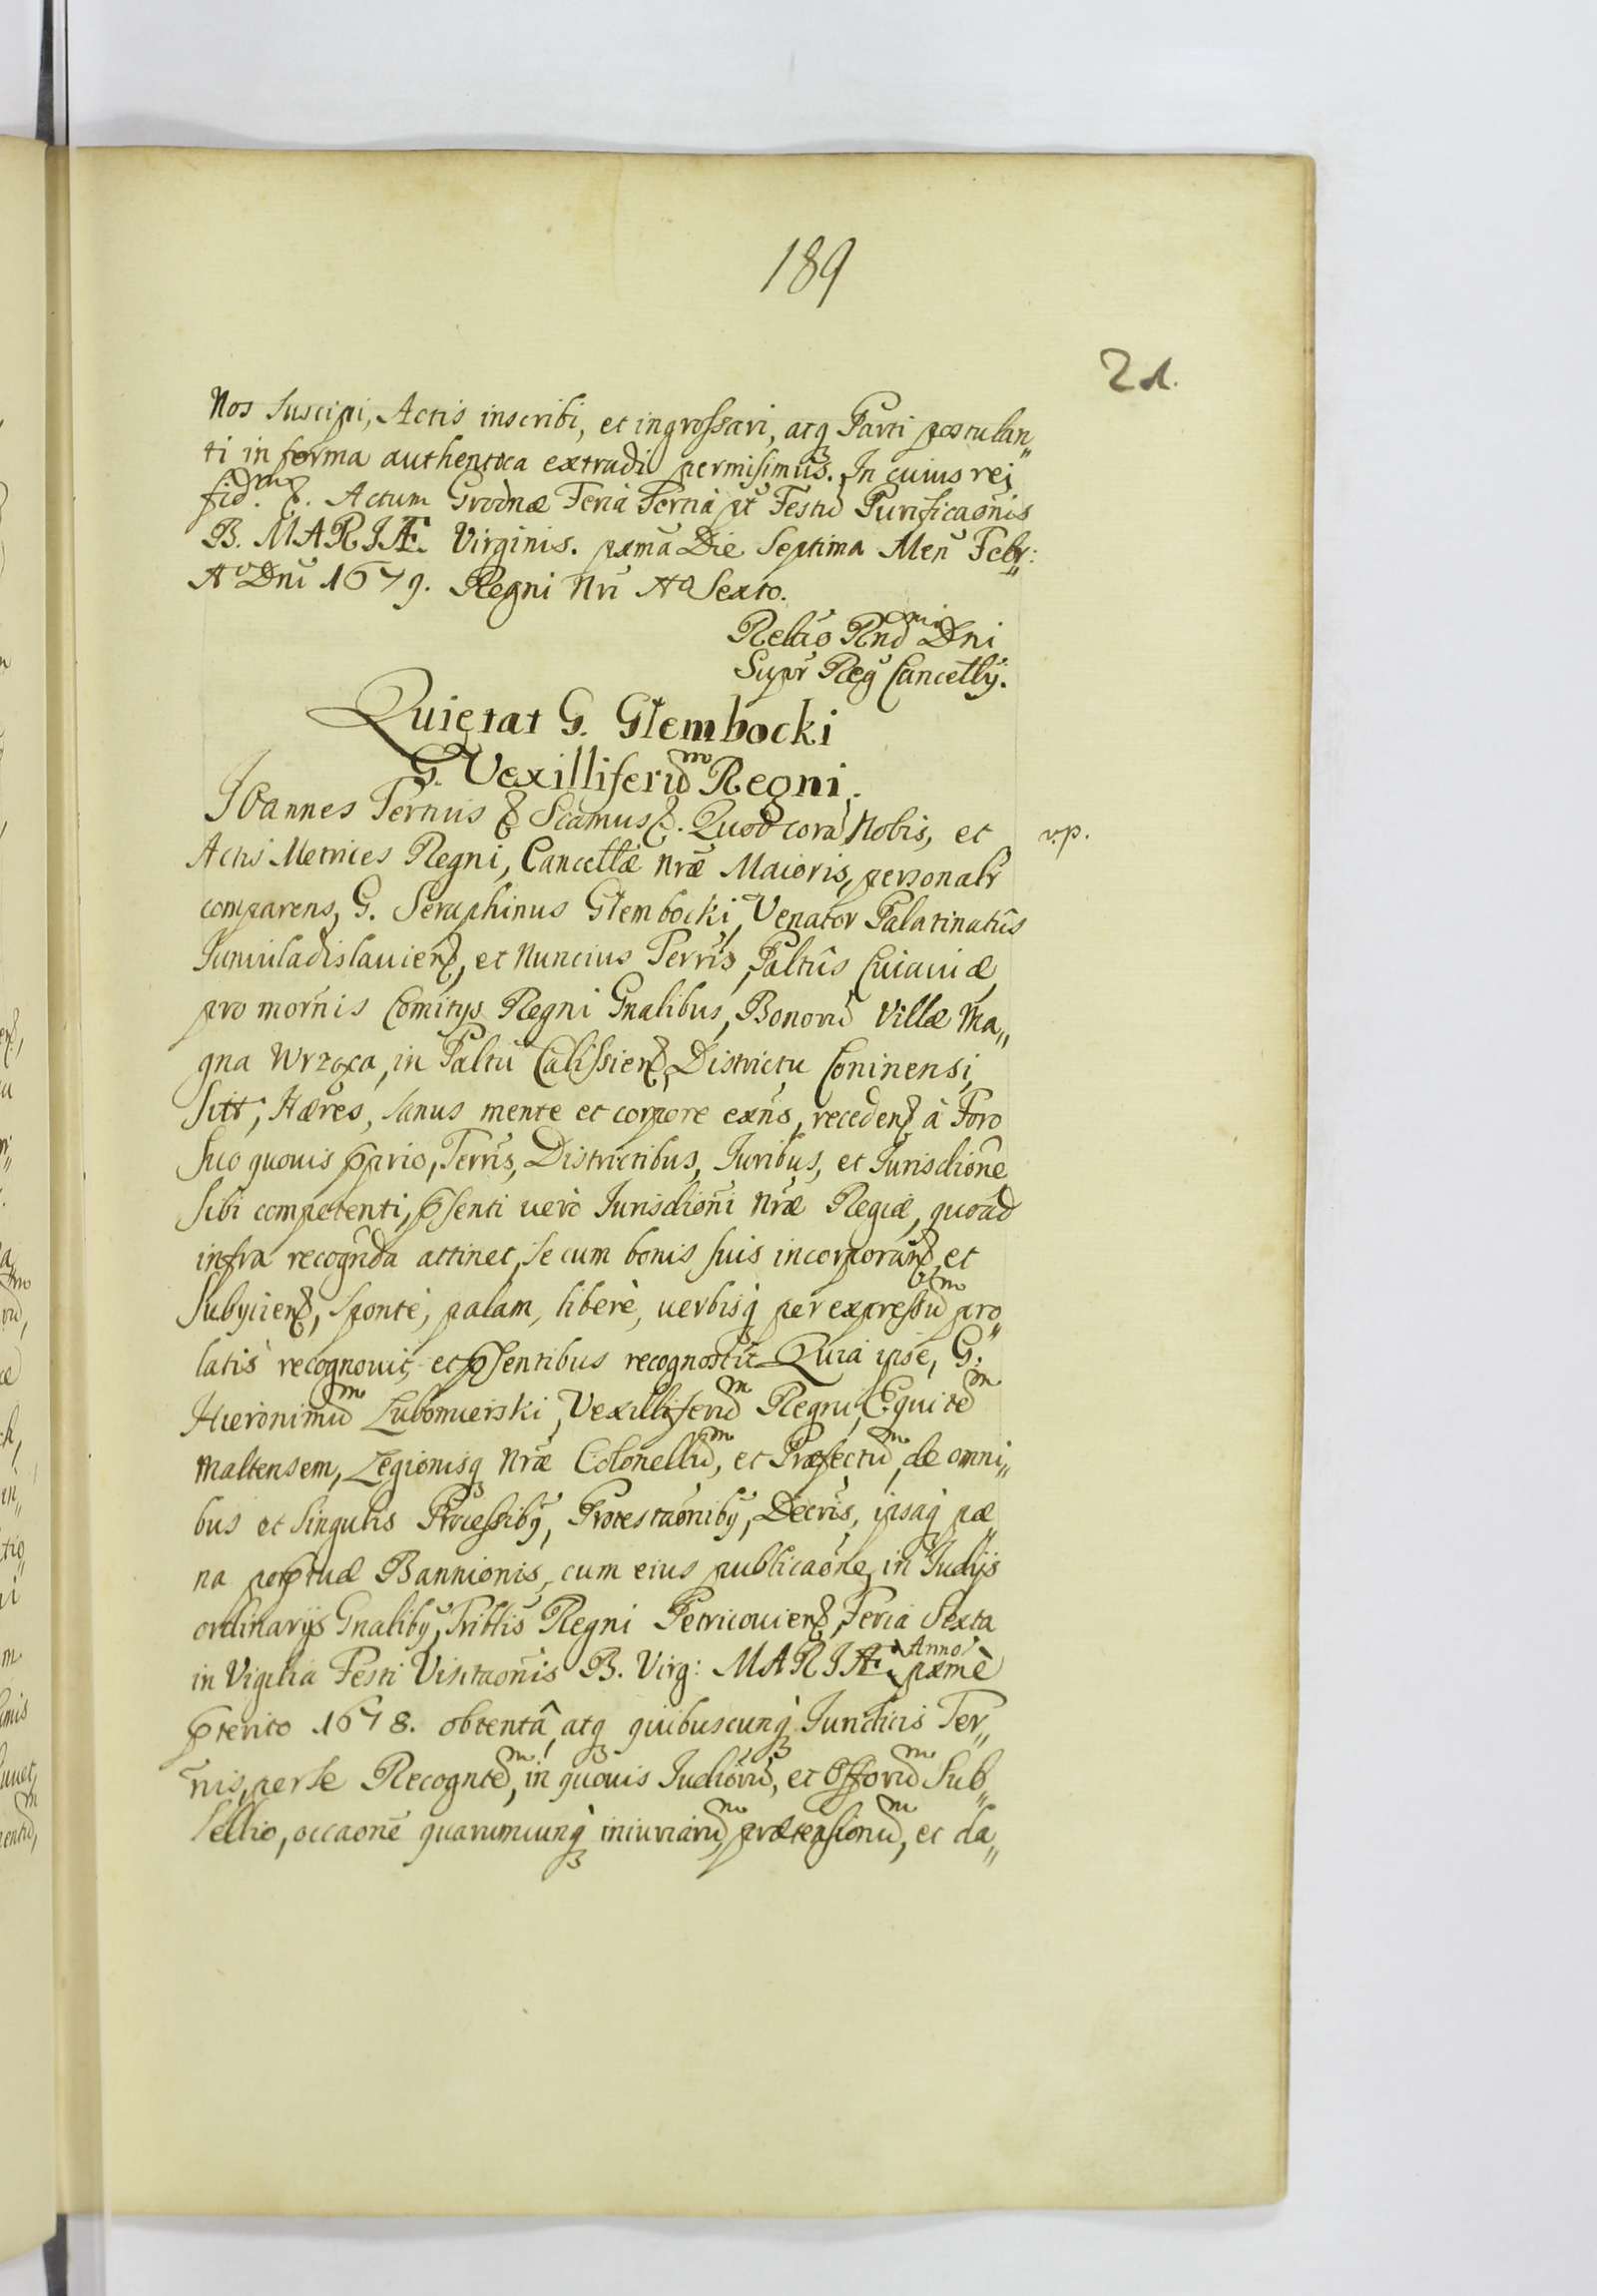 189
21.
Nos suscipi, Actis inscribi, et ingrossari, atq Parti postulan„
ti in forma authentica extradi permisimus. In cuius rei
fid͞m &. Actum Grodnæ Feriá Tertiá pt̃ Festũ Purificao͞nis
B. MARIÆ Virginis. pxmã Die Septima Men̄ Febr:
Aº Dn̄i 1679. Regni Nr̄i Aº Sexto.
Relãs Rn͞dmi Dn̄i
Supr̄ Reg̃ Cancellȳ.
Quietat G. Głembocki
G. Vexilliferũm Regni.
Joannes Tertius & Scãmus &. Quod corã Nobis, et
v.p.
Actis Metrices Regni, Cancellæ nr̃æ Maioris, personalr̃
comparens, G. Seraphinus Głembocki, Venator Palatinatûs
Juniuladislauien̄, et Nuncius Terrĩs Paltûs Cuiauiæ,
pro modr̃nis Comitys Regni Gn̄alibus, Bonorũ Villæ Ma„
gna Wrząca, in Paltũ Calissien̄, Districtu Coninensi,
sitt̃, Hæres, sanus mente et corpore exn̄s, receden̄ à Foro
suo quouis p̱prio, Terrĩs, Districtibus, Juribus, et Jurisdio͞ne
sibi competenti, p̱senti uerò Jurisdio͞ni nr̃æ Regiæ, quoad
infra recogn̄da attinet, se cum bonis suis incorporan̄, et
Subycien̄, sponte, palam, liberè, uerbisq̀ per expressũm pro„
latis recognouit, et p̱sentibus recognoscit Quia ipse, G.
Hieronimũm Lubomierski, Vexilliferũm Regni, Equitẽm
Maltensem, Legionisq nr̃æ Colonellũm, et Præfectũm, de omni„
bus et singulis Processibȳ, Protestao͞nibȳ, Decr̃is, ipsaq̀ pœ„
na perp̱tuæ Bannionis, cum eius publicao͞ne, in Judĩjs
ordinarijs Gn̄alibȳ, Triblĩs Regni Petricouien̄, Feria Sexta
in Vigilia Festi Visitao͞nis B. Virg: MARIÆ, Anno pxmè
p̱terito 1678. obtentâ, atq quibuscunq̀ Juncticis Ter„
r̃nis, per se Recogntẽm, in quouis Judiorũ, et Offorũm Sub„
sellio, occaõne quarumcunq̀ iniuriarũm, prætensionũm, et da„